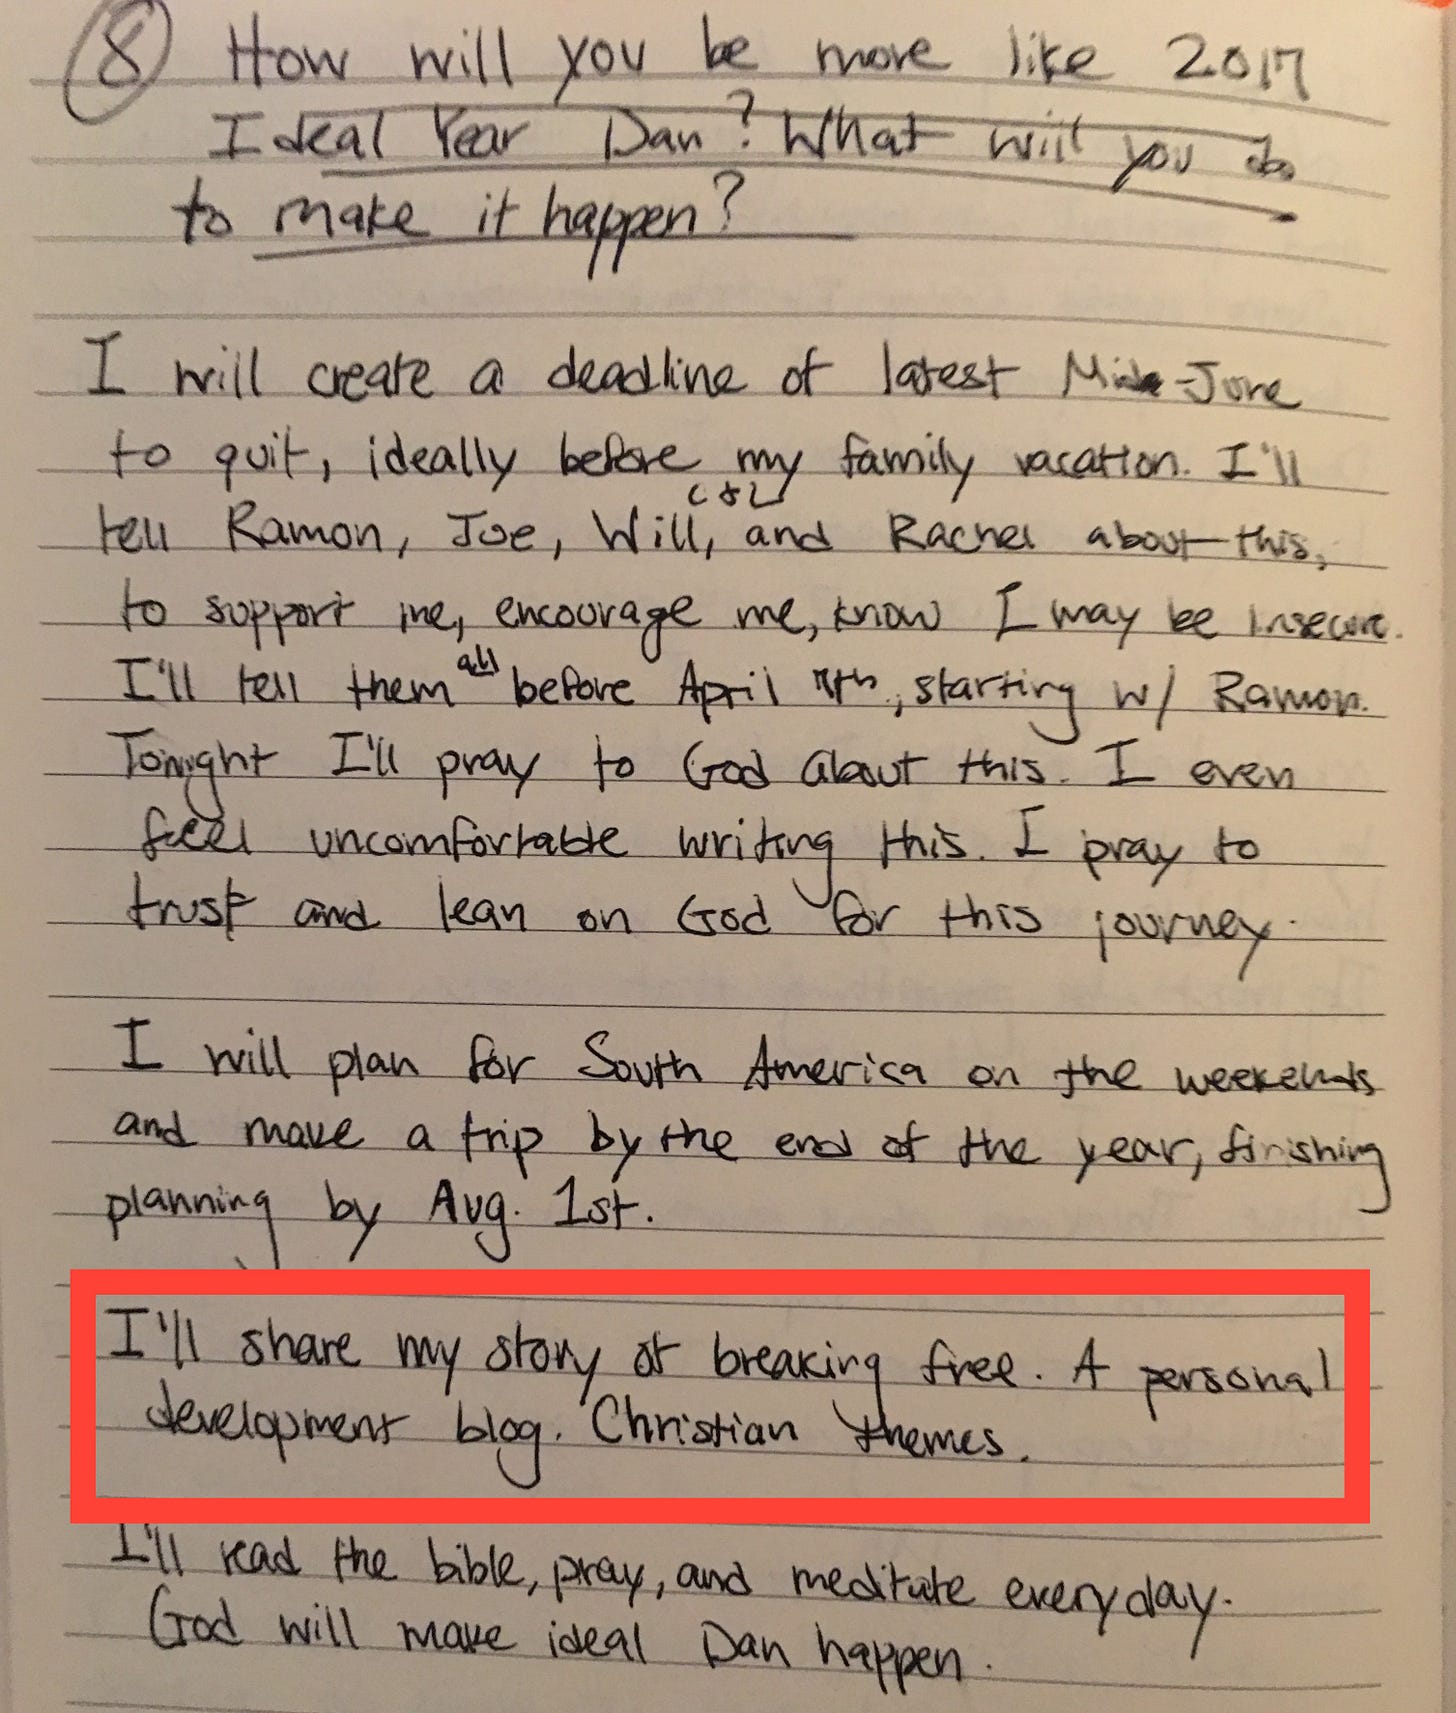 8 How will you be more like 2017
Ideal Year Dan? What will you do
to make it happen?
I will create a deadline of latest Mid-June
to quit, ideally before my family vacation. I'll
C & L
tell Ramon, Joe, Will, and Rachel about this,
to support me, encourage me, know I may be insecure.
all
I'll tell them before April, starting w/ Ramon.
Tonight I'll pray to God about this. I even
feel uncomfortable writing this. I pray to
trust and lean on God for this journey.
I will plan for South America on the weekends
and make a trip by the end of the year, finishing
planning by Aug. 1st.
I'll share my story of breaking free. A personal
development blog. Christian themes.
I'll read the bible, pray, and meditate everyday.
God will make ideal Dan happen.